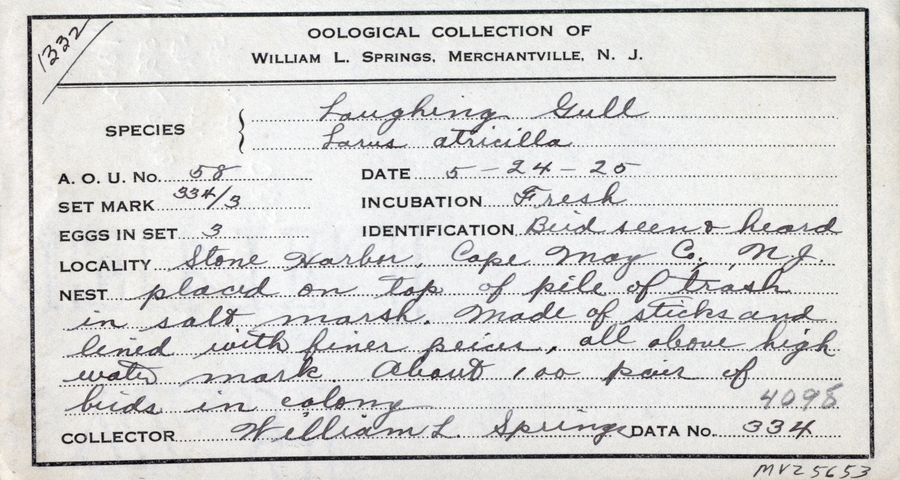 1332
OOLOGICAL COLLECTION OF
WILLIAM L. SPRINGS, MERCHANTVILLE, N. J.
SPECIES { Laughing Gull
Larus atricilla
A. O. U. No. 58 DATE 5-24-25
SET MARK 334/3 INCUBATION Fresh
EGGS IN SET 3 IDENTIFICATION Bird seen & heard
LOCALITY Stone Harbor, Cape May Co., N.J.
NEST placed on top of pile of trash
in salt marsh. Made of sticks and
lined with finer peices, all above high
water mark. About 100 pair of
birds in colony
4098
COLLECTOR William L. Springs DATA No. 334
MVZ5653